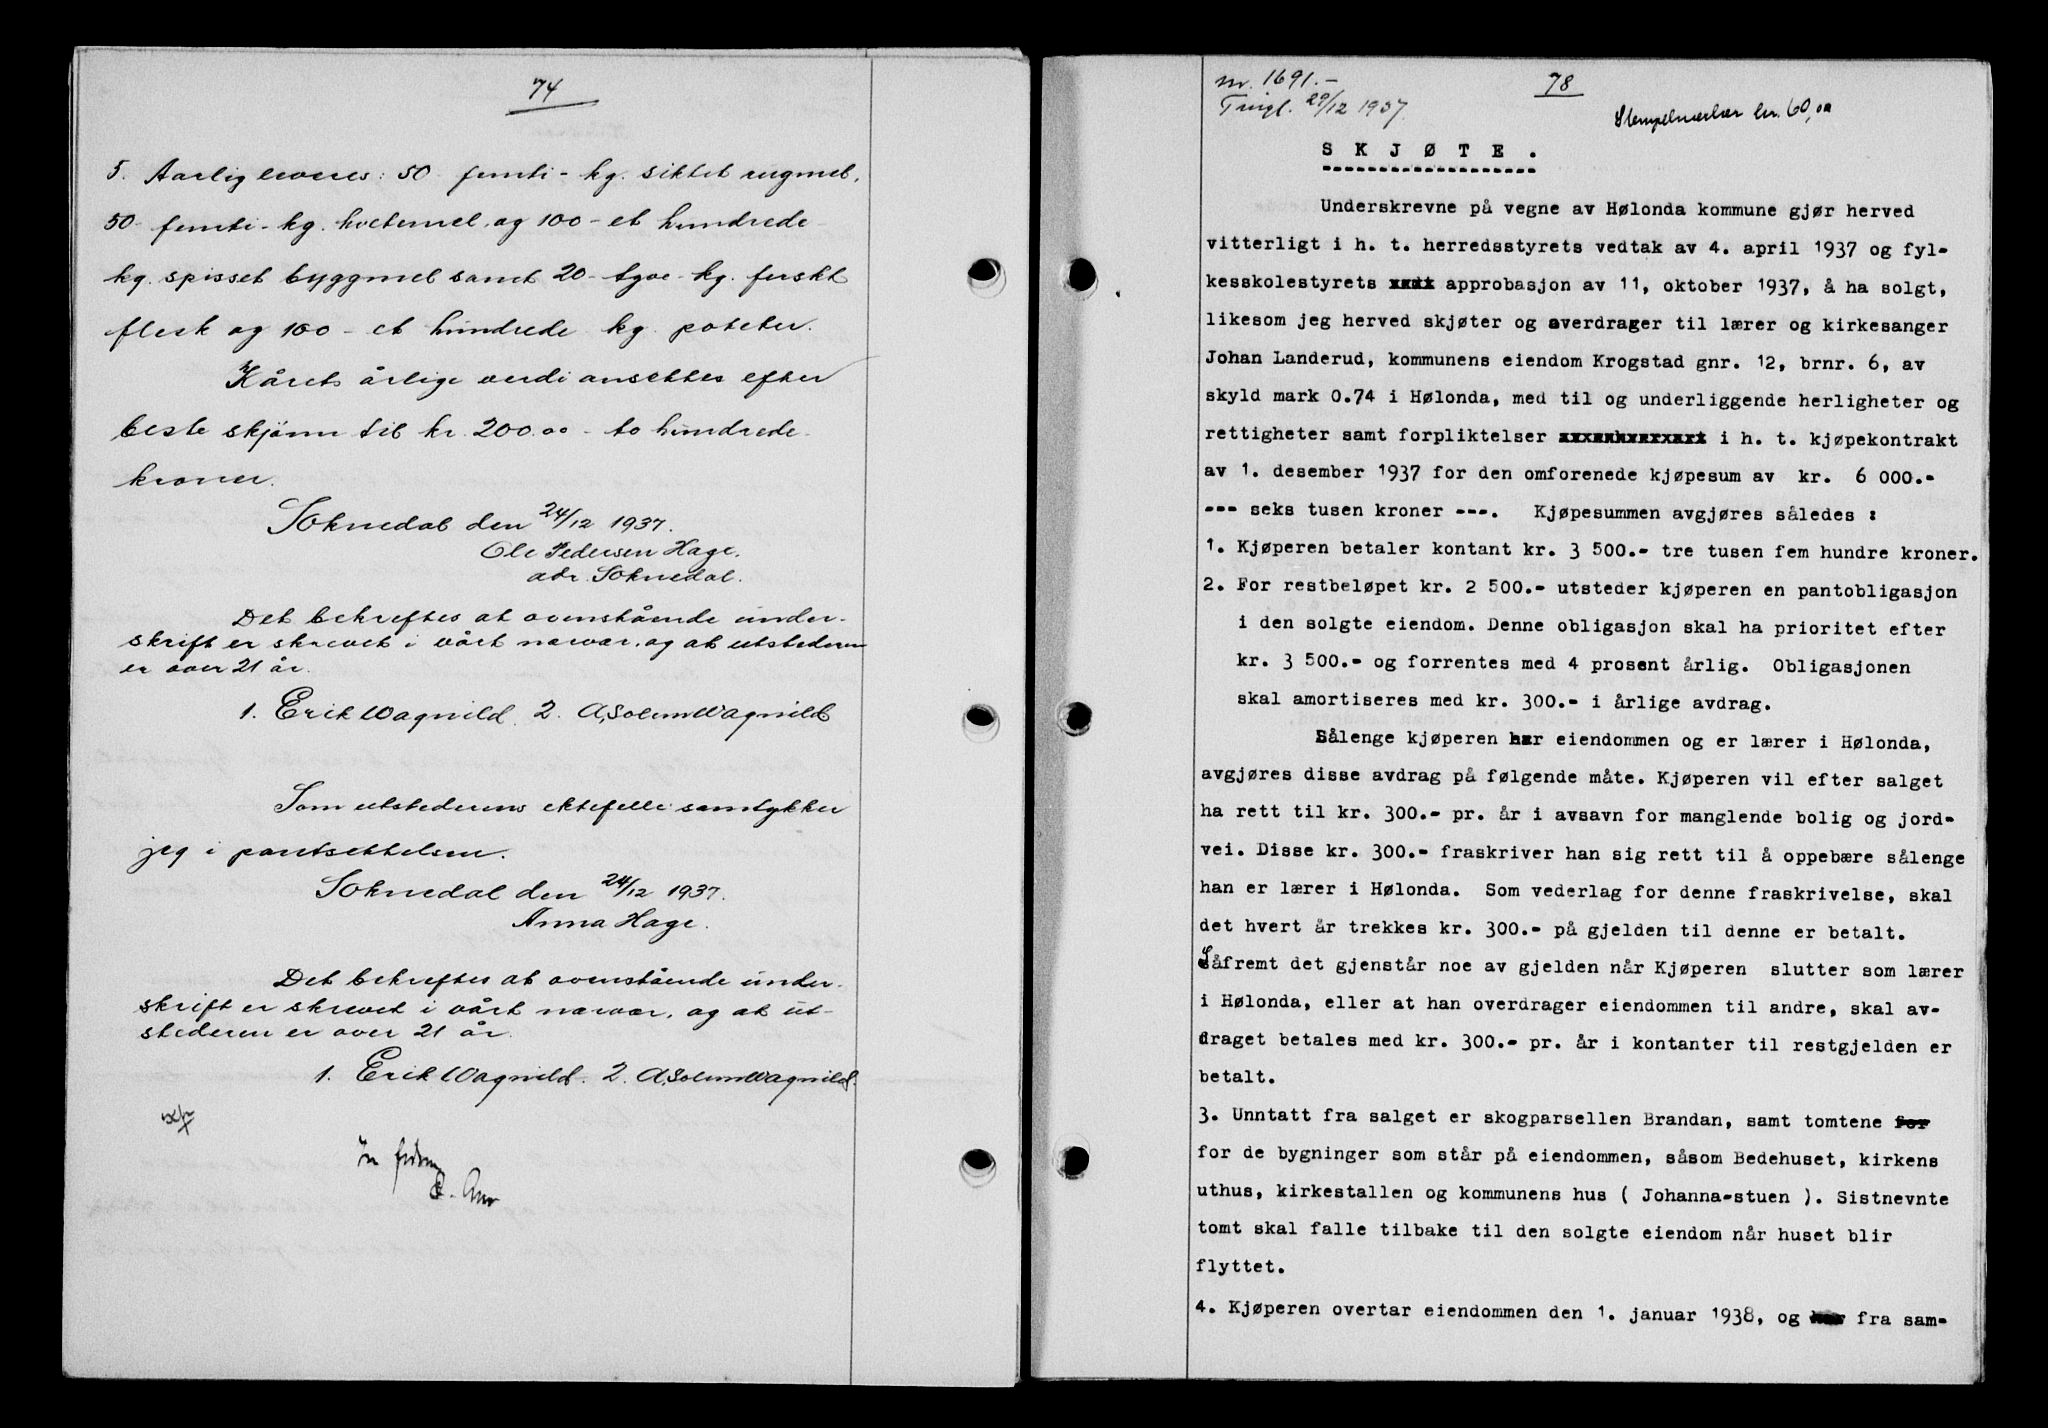 74
5. Aarlig leveres: 50 - femti - kg. siktet rugmel,
50 - femti - kg. hvetemel, og 100 - et hundrede -
kg. spisset byggmel samt 20 - tyve - kg. ferskt
flesk og 100 - et hundrede kg. poteter.
Kårets årlige verdi ansettes efter
beste skjønn til kr. 200.00 - to hundrede -
kroner.
Soknedal den 24/12 1937.
Ole Pedersen Hage.
adr. Soknedal.
Det bekreftes at ovenstående under-
skrift er skrevet i vårt nærvær, og at utstederen
er over 21 år.
1. Erik Wagnild. 2. A. Solem Wagnild
Som utstederens ektefelle samtykker
jeg i pantsettelsen.
Soknedal den 24/12 1937.
Anna Hage.
Det bekreftes at ovenstående under-
skrift er skrevet i vårt nærvær, og at ut-
stederen er over 21 år.
1. Erik Wagnild. 2. A. Solem Wagnild.
nr. 1691.-
Tingl. 29/12 1937.
78
Stempelmerker kr. 60,00
SKJØTE.
Underskrevne på vegne av Hølonda kommune gjør herved
vitterligt i h. t. herredsstyrets vedtak av 4. april 1937 og fyl-
kesskolestyrets approbasjon av 11, oktober 1937, å ha solgt,
likesom jeg herved skjøter og overdrager til lærer og kirkesanger
Johan Landerud, kommunens eiendom Krogstad gnr. 12, brnr. 6, av
skyld mark 0.74 i Hølonda, med til og underliggende herligheter og
rettigheter samt forpliktelser i h. t. kjøpekontrakt
av 1. desember 1937 for den omforenede kjøpesum av kr. 6 000.-
--- seks tusen kroner ---. Kjøpesummen avgjøres således :
1. Kjøperen betaler kontant kr. 3 500.- tre tusen fem hundre kroner.
2. For restbeløpet kr. 2 500.- utsteder kjøperen en pantobligasjon
i den solgte eiendom. Denne obligasjon skal ha prioritet efter
kr. 3 500.- og forrentes med 4 prosent årlig. Obligasjonen
skal amortiseres med kr. 300.- i årlige avdrag.
Sålenge kjøperen har eiendommen og er lærer i Hølonda,
avgjøres disse avdrag på følgende måte. Kjøperen vil efter salget
ha rett til kr. 300.- pr. år i avsavn for manglende bolig og jord-
vei. Disse kr. 300.- fraskriver han sig rett til å oppebære sålenge
han er lærer i Hølonda. Som vederlag for denne fraskrivelse, skal
det hvert år trekkes kr. 300.- på gjelden til denne er betalt.
Såfremt det gjenstår noe av gjelden når Kjøperen slutter som lærer
i Hølonda, eller at han overdrager eiendommen til andre, skal av-
draget betales med kr. 300.- pr. år i kontanter til restgjelden er
betalt.
3. Unntatt fra salget er skogparsellen Brandan, samt tomtene for
for de bygninger som står på eiendommen, såsom Bedehuset, kirkens
uthus, kirkestallen og kommunens hus ( Johanna-stuen ). Sistnevnte
tomt skal falle tilbake til den solgte eiendom når huset blir
flyttet.
4. Kjøperen overtar eiendommen den 1. januar 1938, og fra sam-